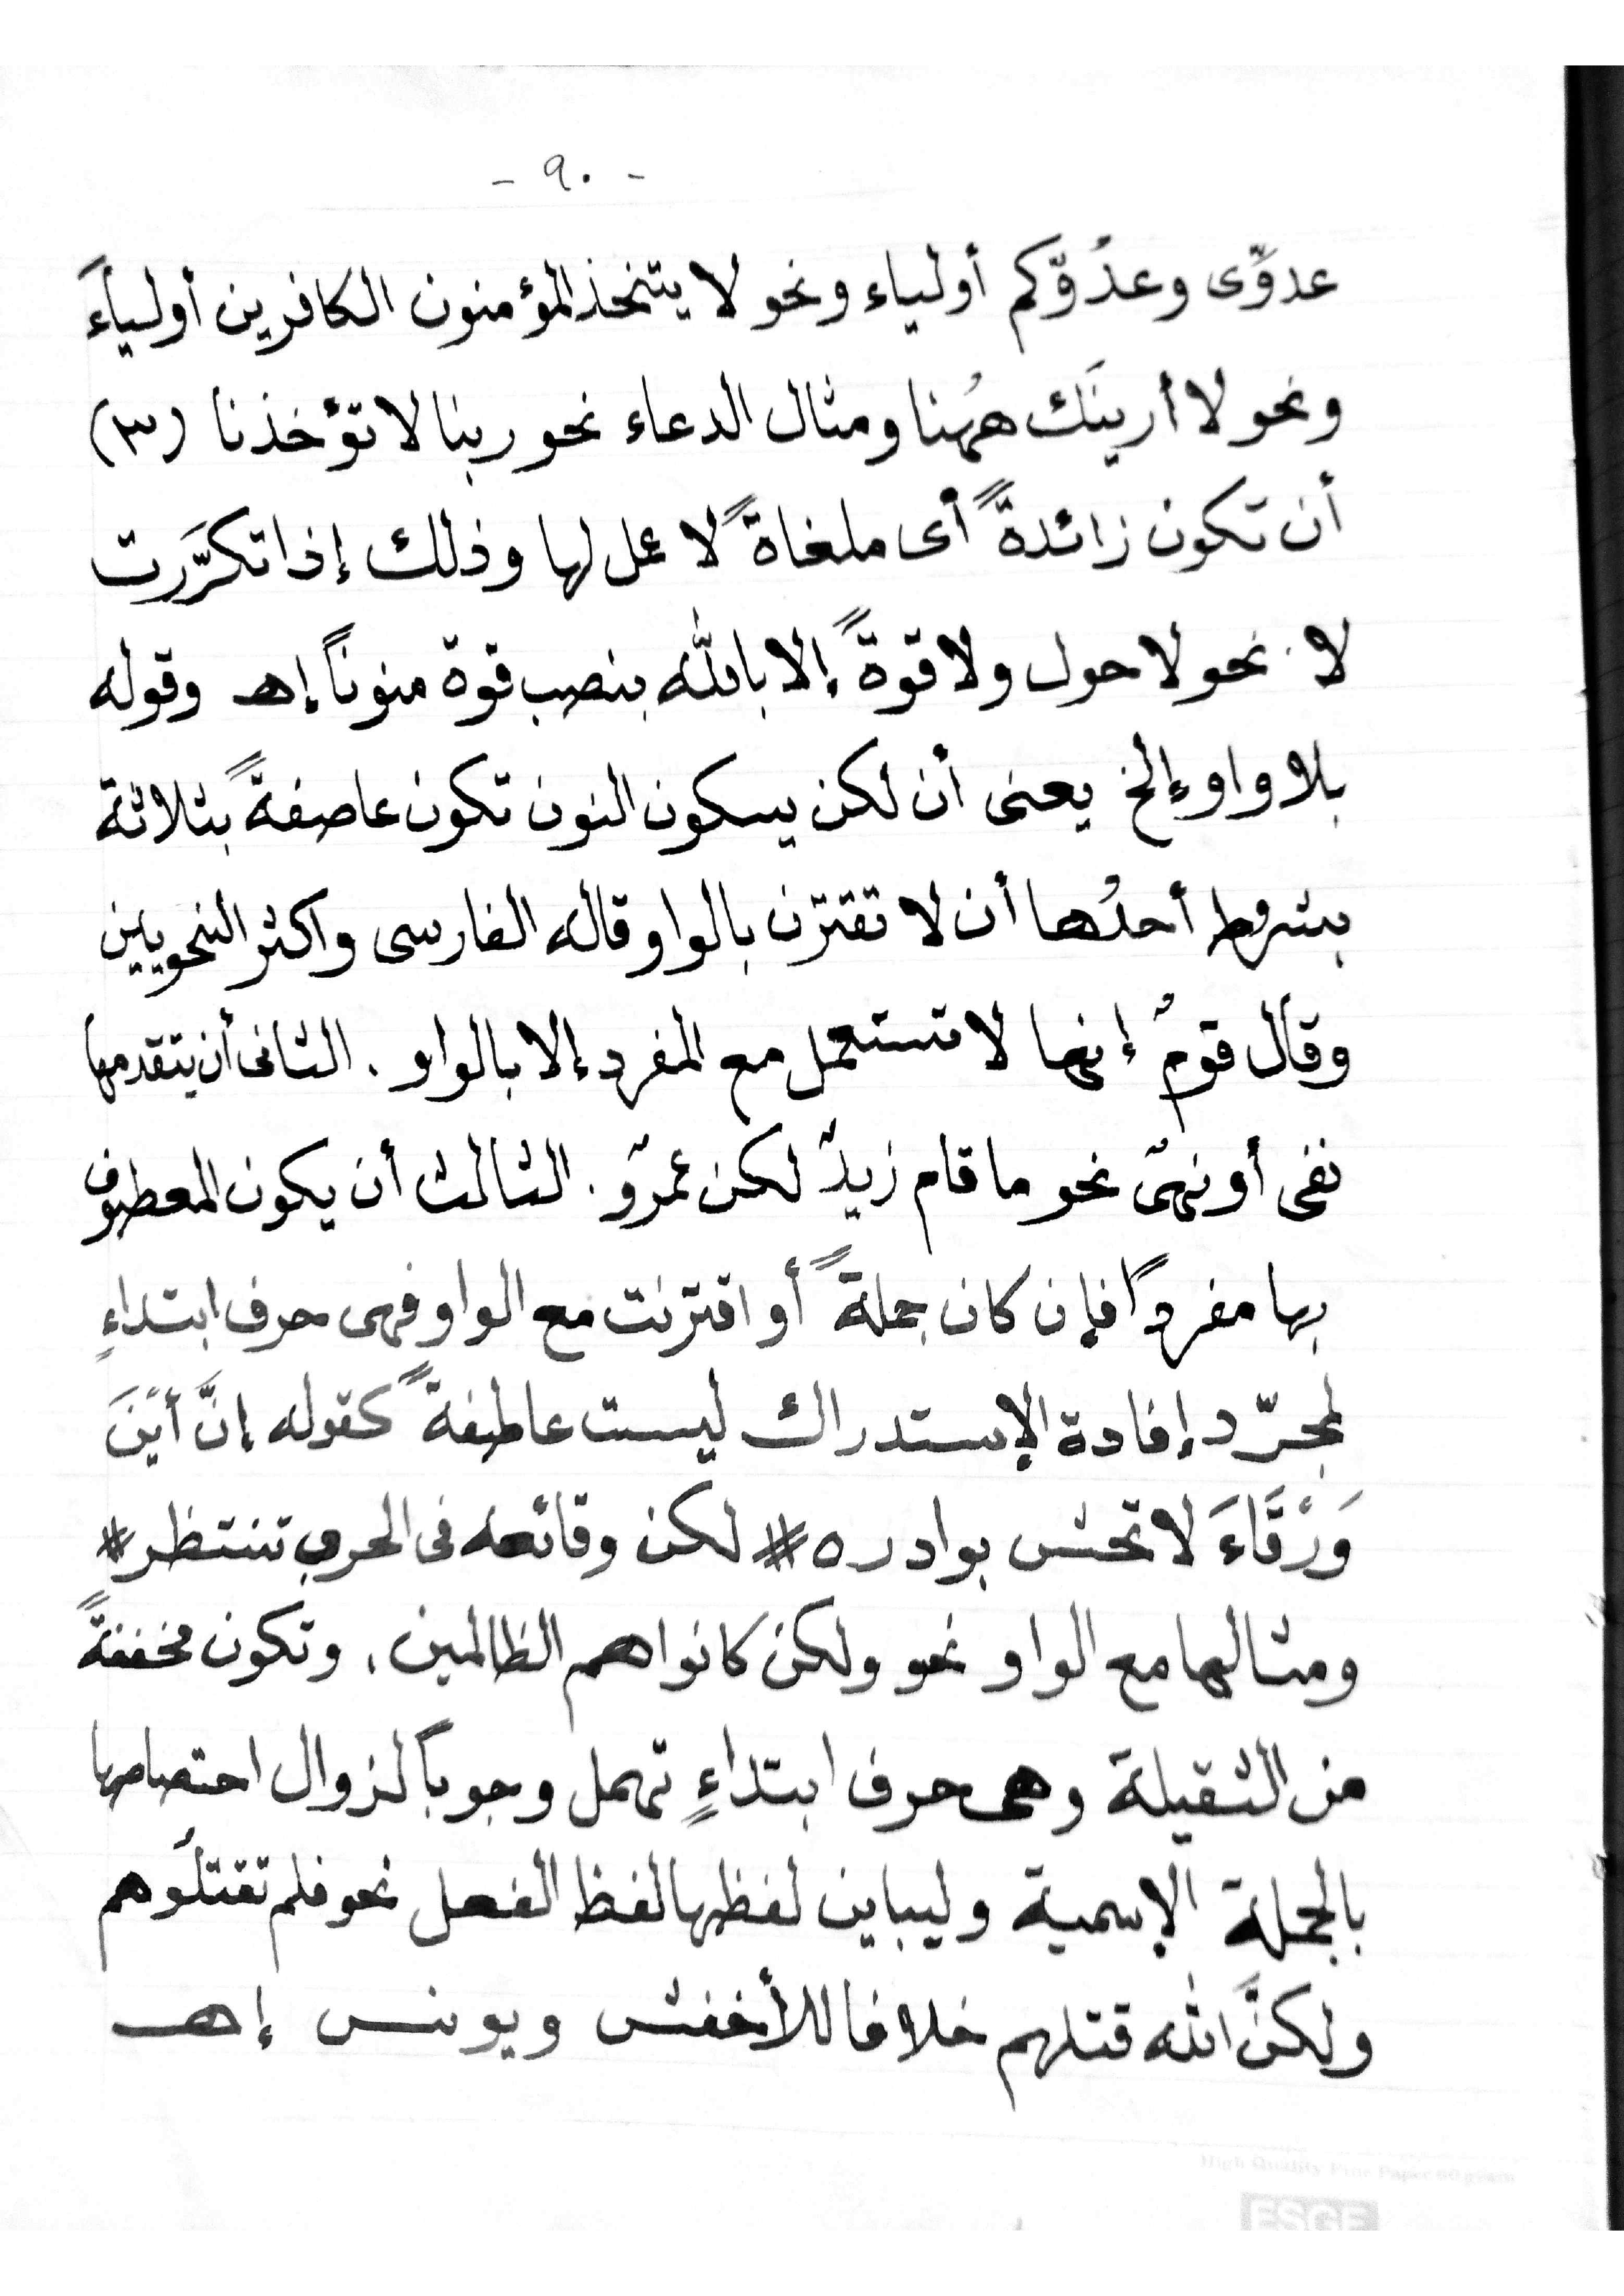 - ٩٠ -
عدوّى وعدُوّكم أولياء ونحو لا يتخذ المؤمنون الكافرين أولياءَ
ونحو لا أرينَك ههُنا ومثال الدعاء نحو ربنا لا تؤخذنا (٣)
أن تكون زائدةً أى ملغاةً لا عمل لها وذلك إذا تكرَّرت
لا نحو لا حول ولا قوةً إلا بالله بنصب قوة منوناً إهـ وقوله
بلا واو إلخ يعنى أن لكن بسكون النون تكون عاصفةً بثلاثة
بشروط أحدُها أن لا تقترن بالواو قاله الفارسى واكثر النحويين
وقال قومٌ إنها لا تستعمل مع المفرد إلا بالواو . الثانى أن يتقدمها
نفى أو نهىٌ نحو ما قام زيدٌ لكن عمرٌو . الثالث أن يكون المعطوف
بها مفرداً فإن كان جملةً أو اقترنت مع الواو فهى حرف ابتداءٍ
لمجرّد إفادة الإستدراك ليست عاطفةً كقوله إنَّ أبْنَ
وَرْقَاءَ لا تخش بوادره # لكن وقائعه فى الحرب تنتظر #
ومثالها مع الواو نحو ولكن كانوا هم الظالمين . وتكون مخففةً
من الثقيلة وهى حرف ابتداءٍ تهمل وجوباً لزوال احتصاصها
بالجملة الإسمية وليباين لفظها لفظ الفعل نحو فلم تقتلُوهم
ولكنَّ الله قتلهم خلافا للأخفش ويونس إهـ
High Quality Fine Paper 60 gram
ESGE